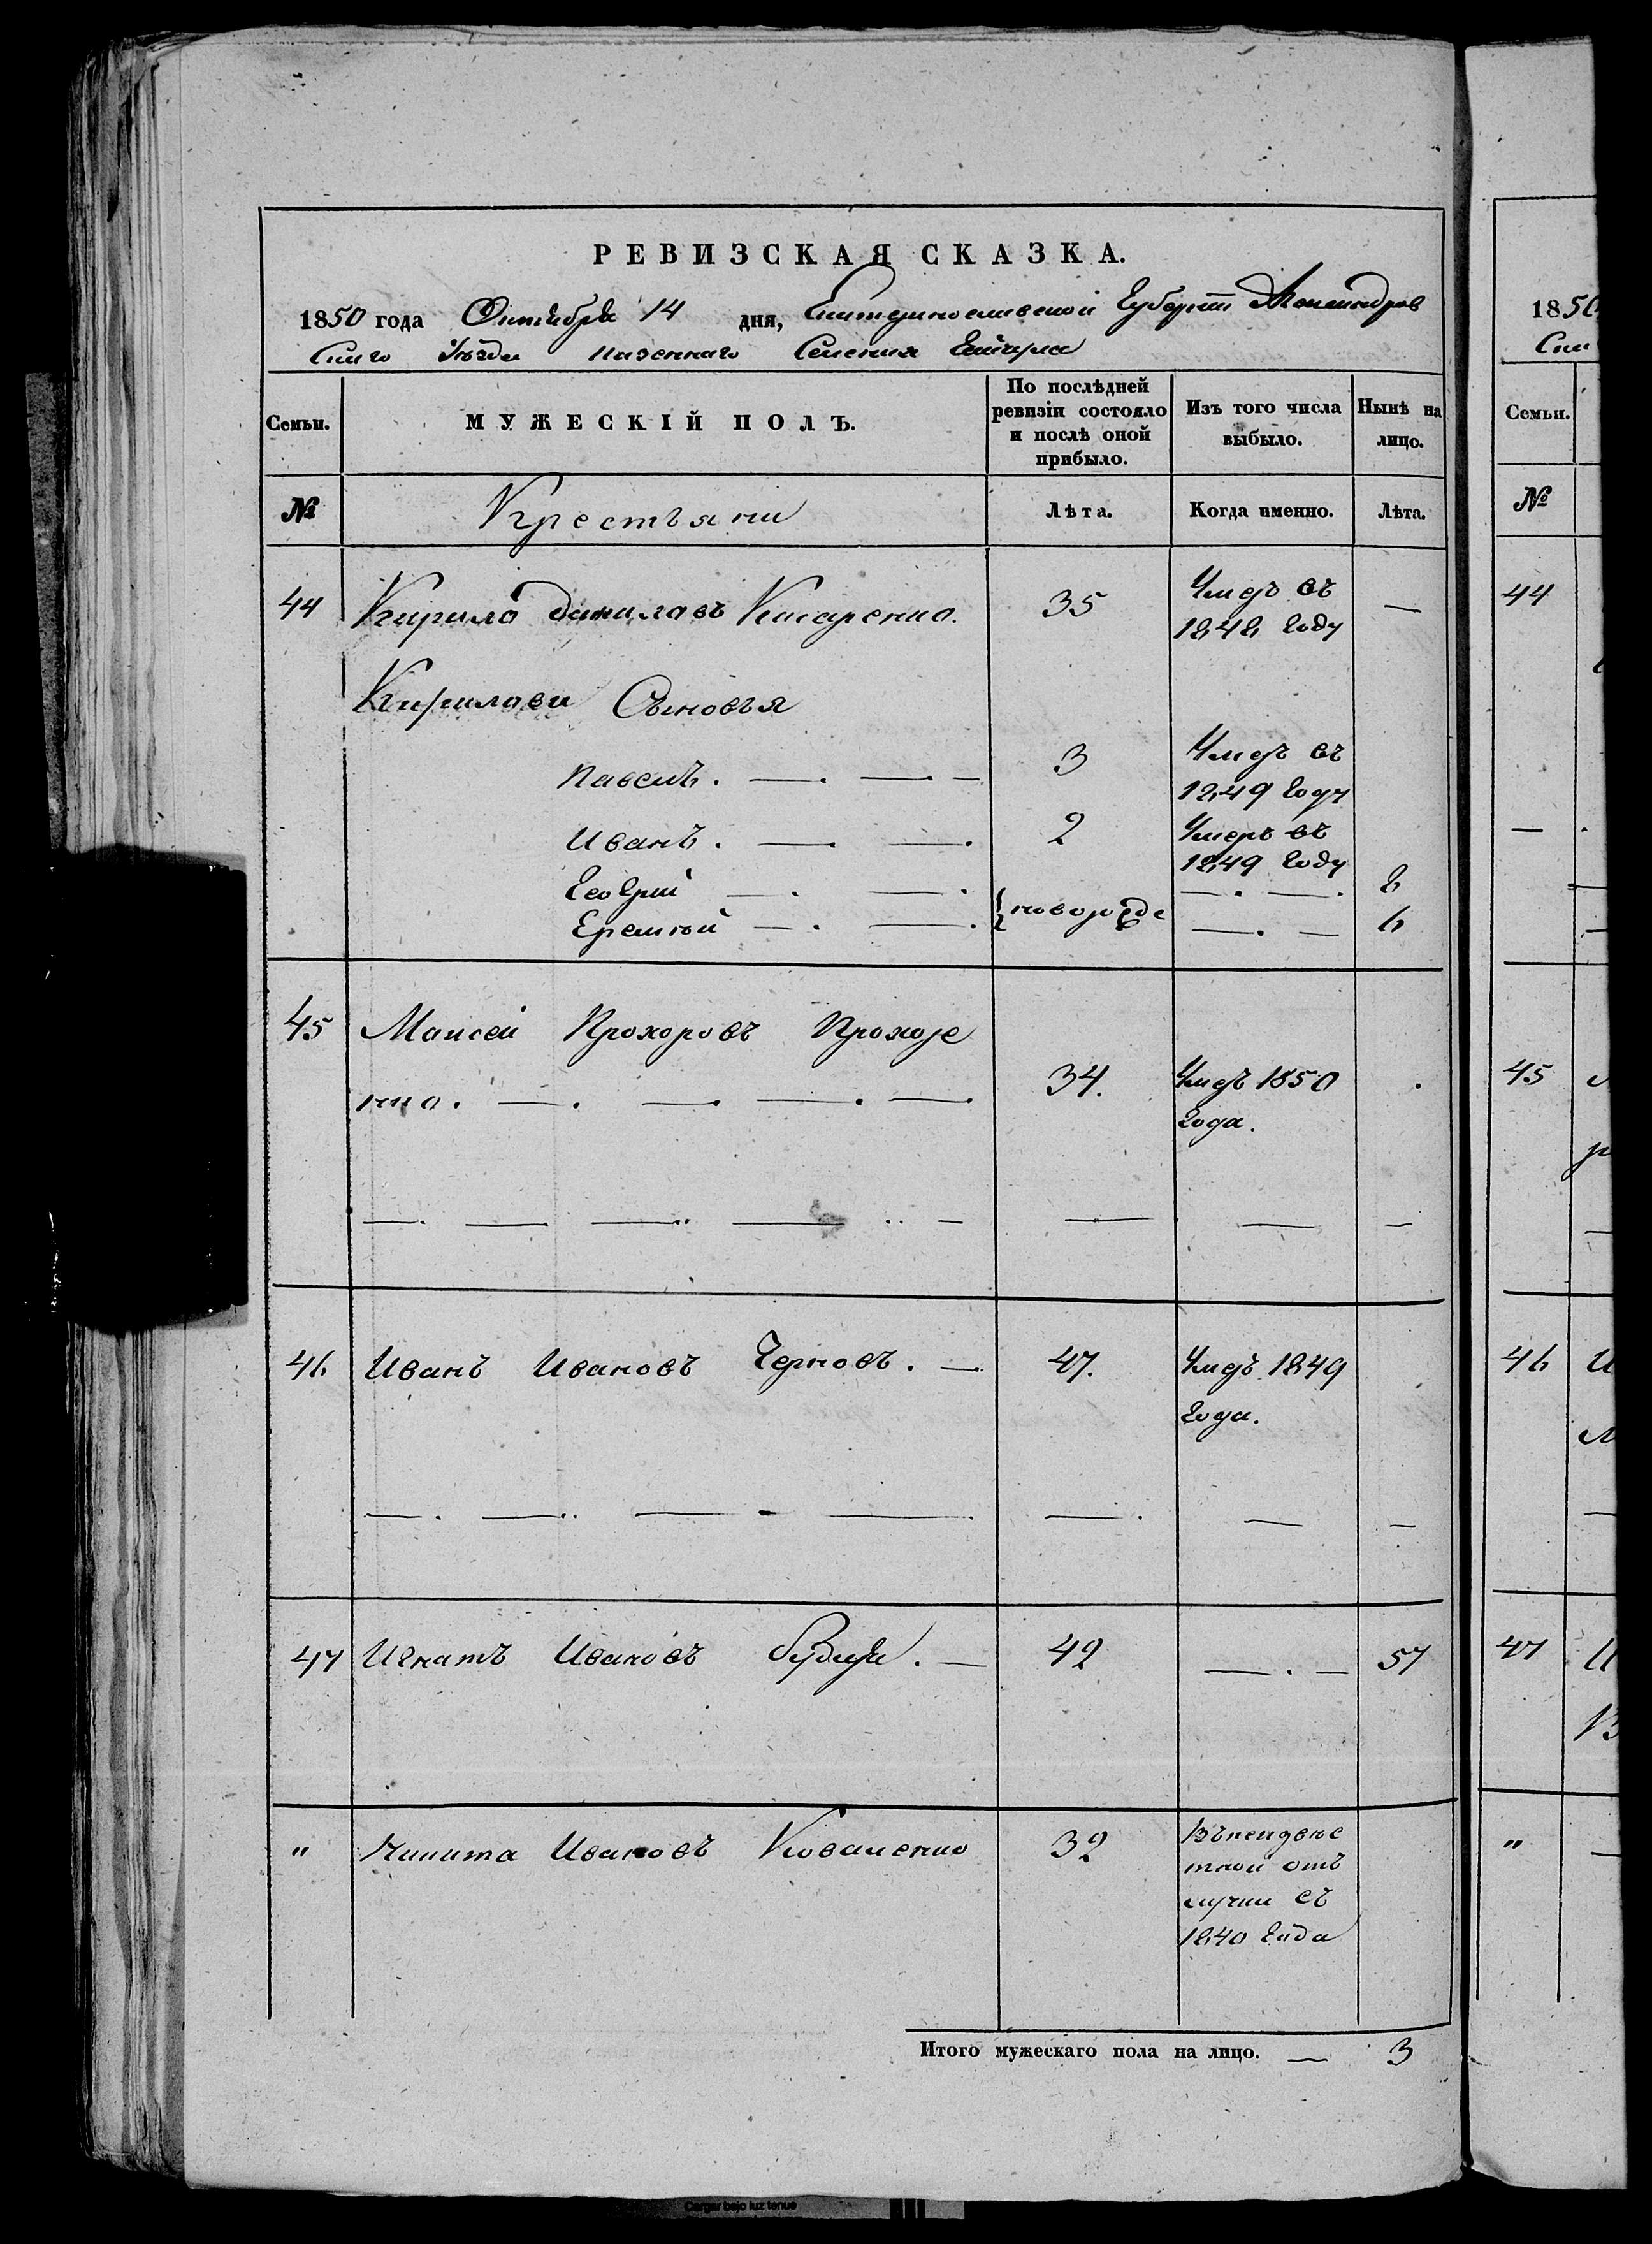 РЕВИЗСКАЯ СКАЗКА.
1850 года Октября 14 дня, Екатеринославской Губернии Александров
скаго Уѣзда казеннаго Селения
Семьи.
МУЖЕСКІЙ ПОЛЪ.
По послѣдней
ревизіи состояло
и послѣ оной
прибыло.
Изъ того числа
выбыло.
Нынѣ на
лицо.
№
Крестьяни
Лѣта.
Когда именно.
Лѣта.
44 Кирило Данилавъ 35 Умеръ въ —
1848 году
Кирилави Сыновья
Павелъ. 3 Умеръ въ
1849 году
Иванъ. 2 Умеръ въ
1849 году
Георгій новорожде 8
Еремѣй 6
45 Маисей Прохоровъ Прохоре
нко. 34. Умеръ 1850
года.
46 Иванъ Ивановъ Черновъ. 47. Умеръ 1849
года.
47 Игнатъ Ивановъ 42 57
" Никита Ивановъ Коваленко 32
отъ
лучки съ
1840 года
Итого мужескаго пола на лицо. — 3
1850
Ски
Семьи.
№
44
45
46
47
"
Cargar bajo luz tenue